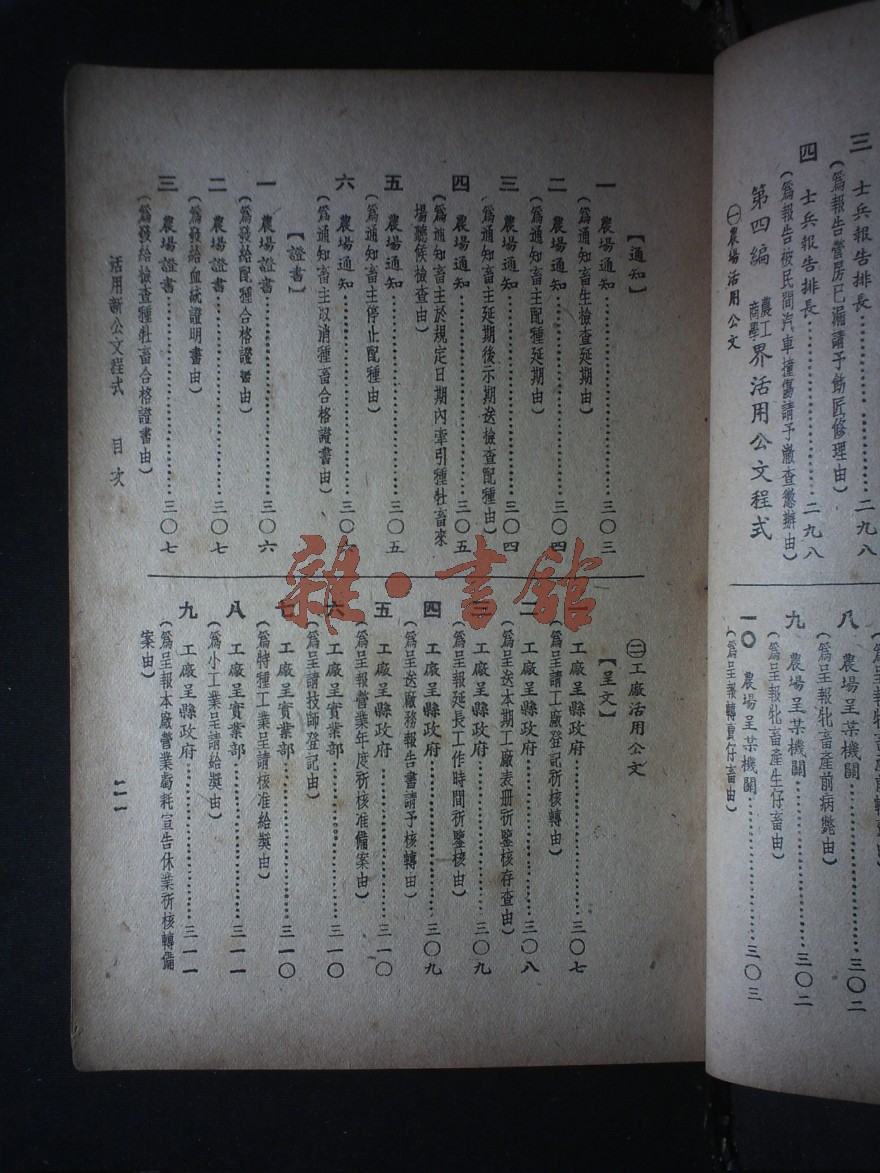 三 士兵報告排長…………二九八
(爲報告營房已漏請予飭匠修理由)
四 士兵報告排長…………二九八
(爲報告被民間汽車撞傷請予澈查懲辦由)
第四編 農工商學界活用公文程式
㊀農場活用公文
八 農場呈某機關…………三〇二
(爲呈報牝畜產前病斃由)
九 農場呈某機關…………三〇二
(爲呈報牝畜產生仔畜由)
一〇 農場呈某機關…………三〇三
(爲呈報轉賣仔畜由)
【通知】
一 農場通知…………三〇三
(爲通知畜生檢查延期由)
二 農場通知…………三〇四
(爲通知畜主配種延期由)
三 農場通知…………三〇四
(爲通知畜主延期後示期送檢查配種由)
四 農場通知…………三〇五
(爲通知畜主於規定日期內牽引種牡畜來
場聽候檢查由)
五 農場通知…………三〇五
(爲通知畜主停止配種由)
六 農場通知…………三〇六
(爲通知畜主取消種畜合格證書由)
【證書】
一 農場證書…………三〇六
(爲發給配種合格證書由)
二 農場證書…………三〇七
(爲發給血統證明書由)
三 農場證書…………三〇七
(爲發給檢查種牡畜合格證書由)
㊁工廠活用公文
【呈文】
一 工廠呈縣政府…………三〇七
(爲呈請工廠登記祈核轉由)
二 工廠呈縣政府…………三〇八
(爲呈送本期工廠表册祈鑒核存查由)
三 工廠呈縣政府…………三〇九
(爲呈報延長工作時間祈鑒核由)
四 工廠呈縣政府…………三〇九
(爲呈送廠務報告書請予核轉由)
五 工廠呈縣政府…………三一〇
(爲呈報營業年度祈核准備案由)
六 工廠呈實業部…………三一〇
(爲呈請技師登記由)
七 工廠呈實業部…………三一〇
(爲特種工業呈請核准給獎由)
八 工廠呈實業部…………三一一
(爲小工業呈請給獎由)
九 工廠呈縣政府…………三一一
(爲呈報本廠營業虧耗宣告休業祈核轉備
案由)
活用新公文程式 目次
二一
雜·書館